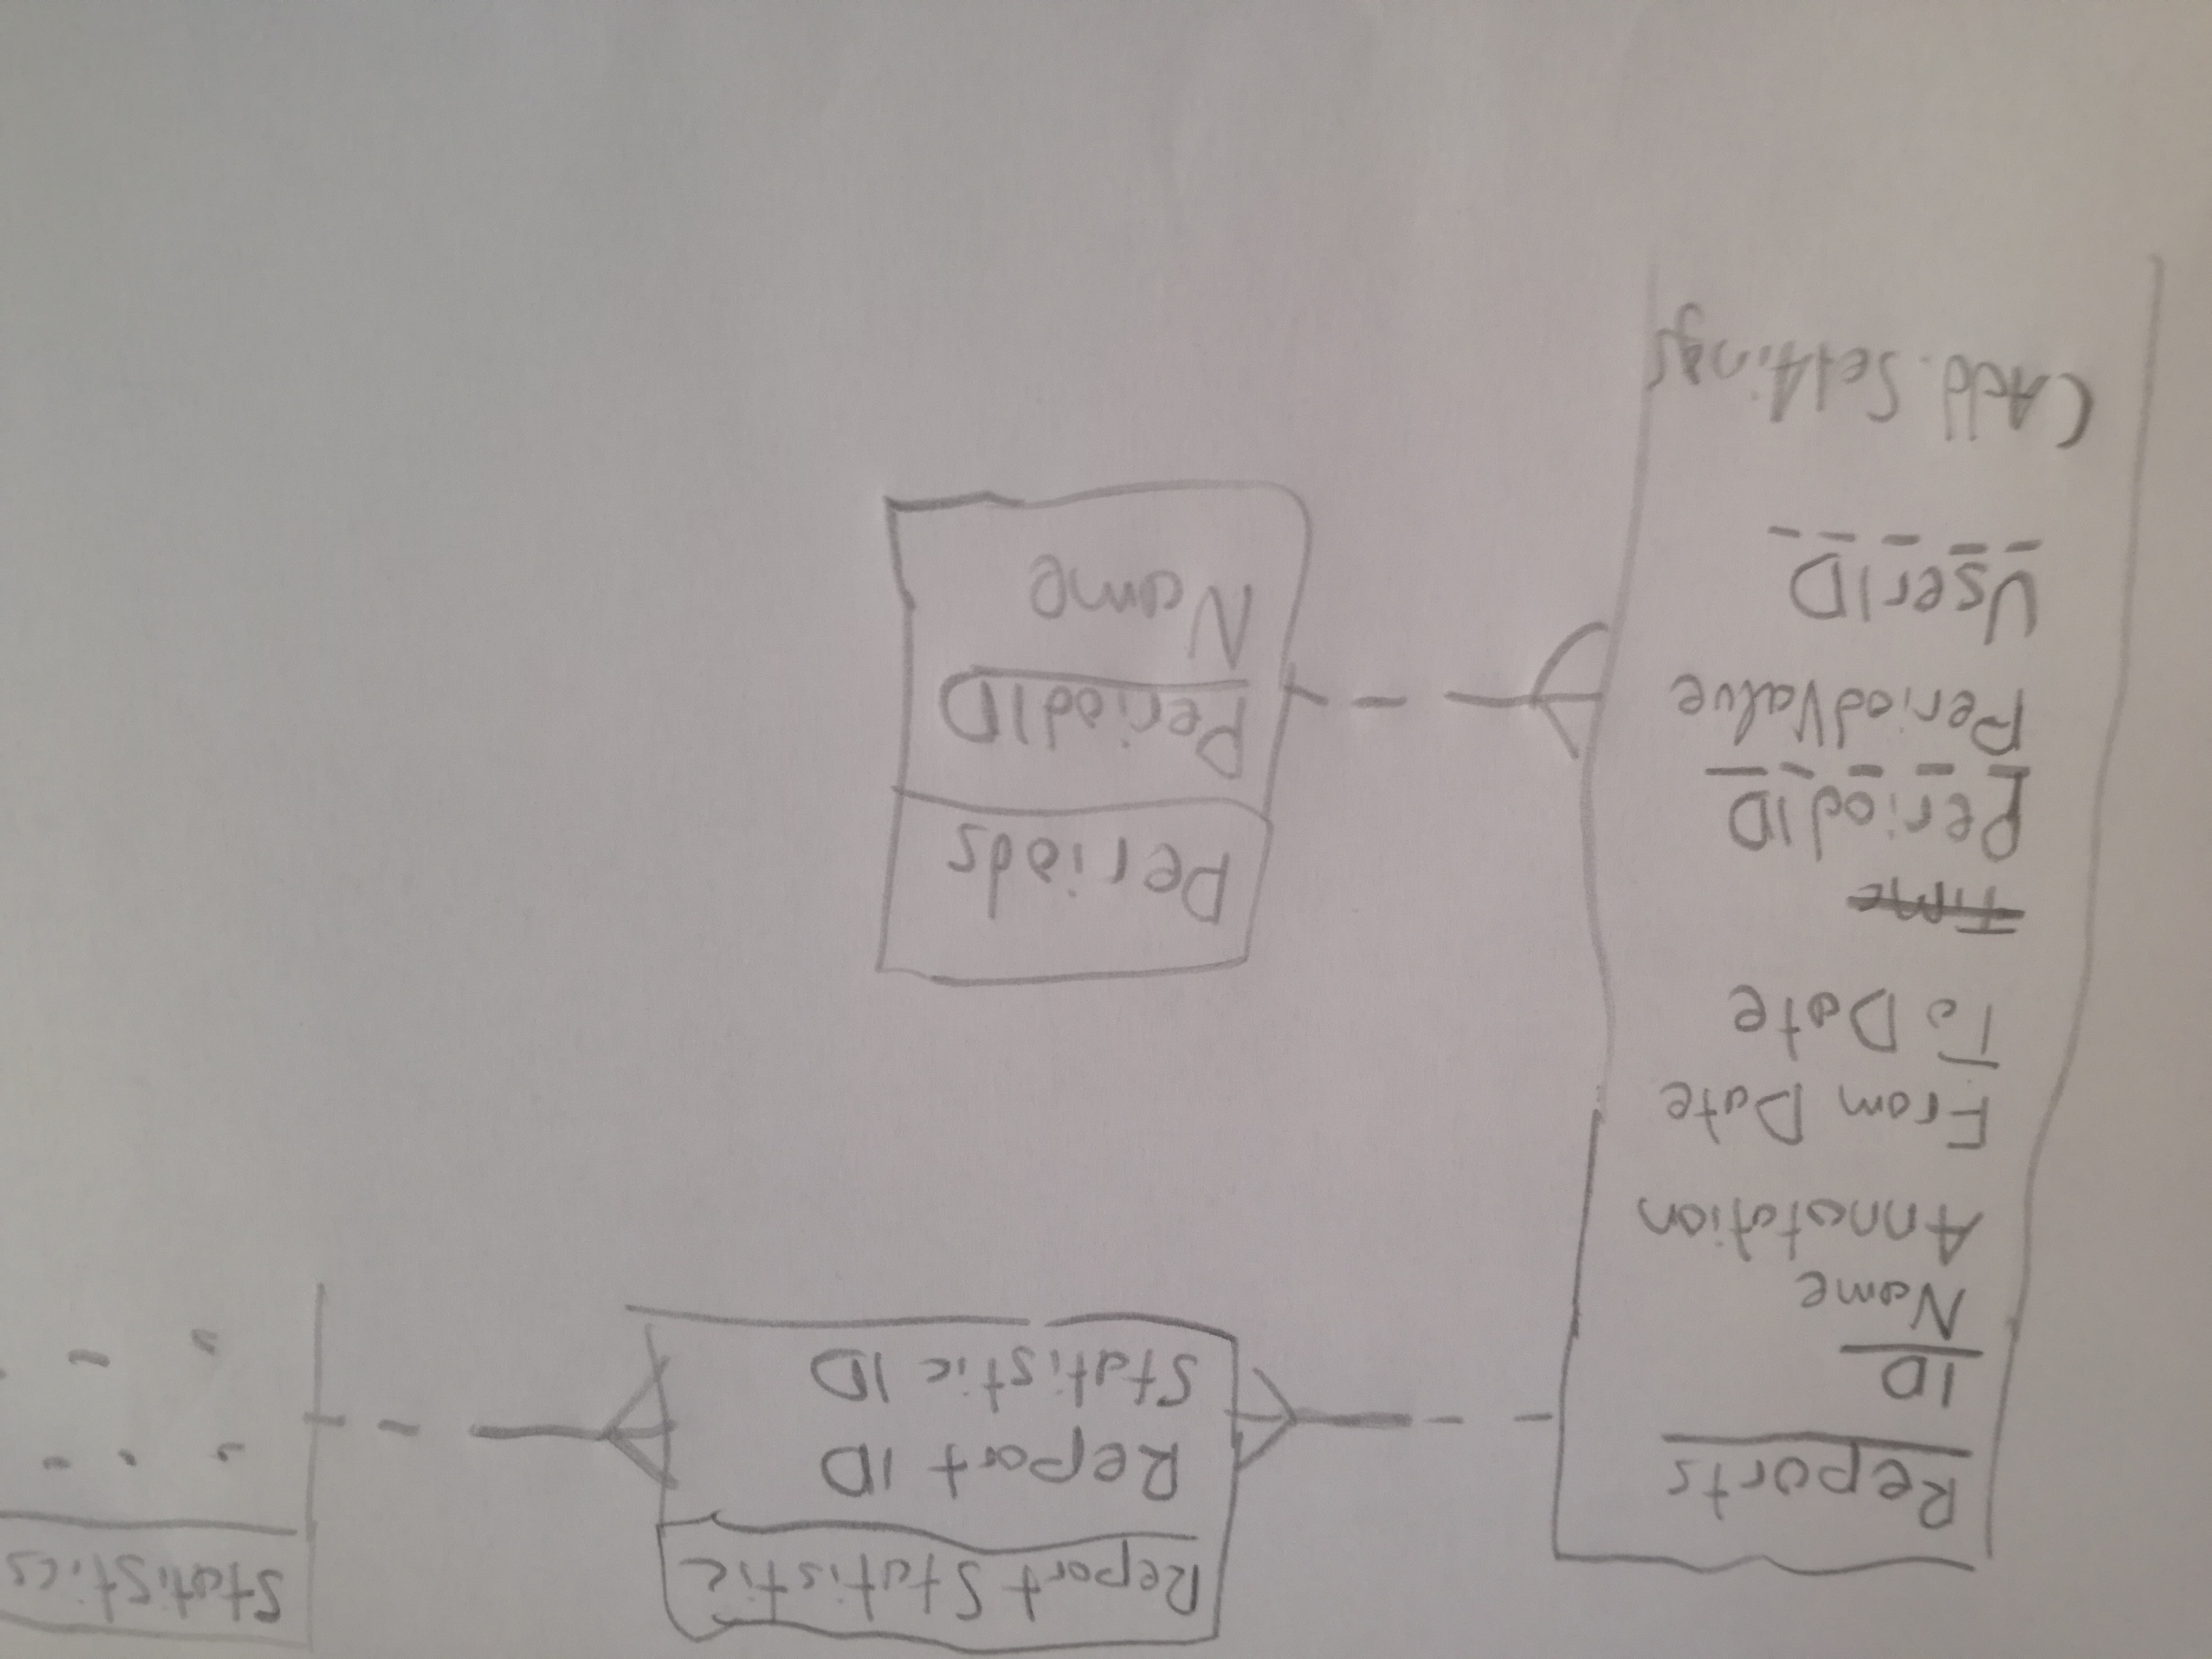 Reports
ID
Name
Annotation
From Date
To Date
Time
PeriodID
PeriodValue
UserID
(Add. Settings
Report Statistic
Report ID
Statistic ID
Statistics
Periods
PeriodID
Name